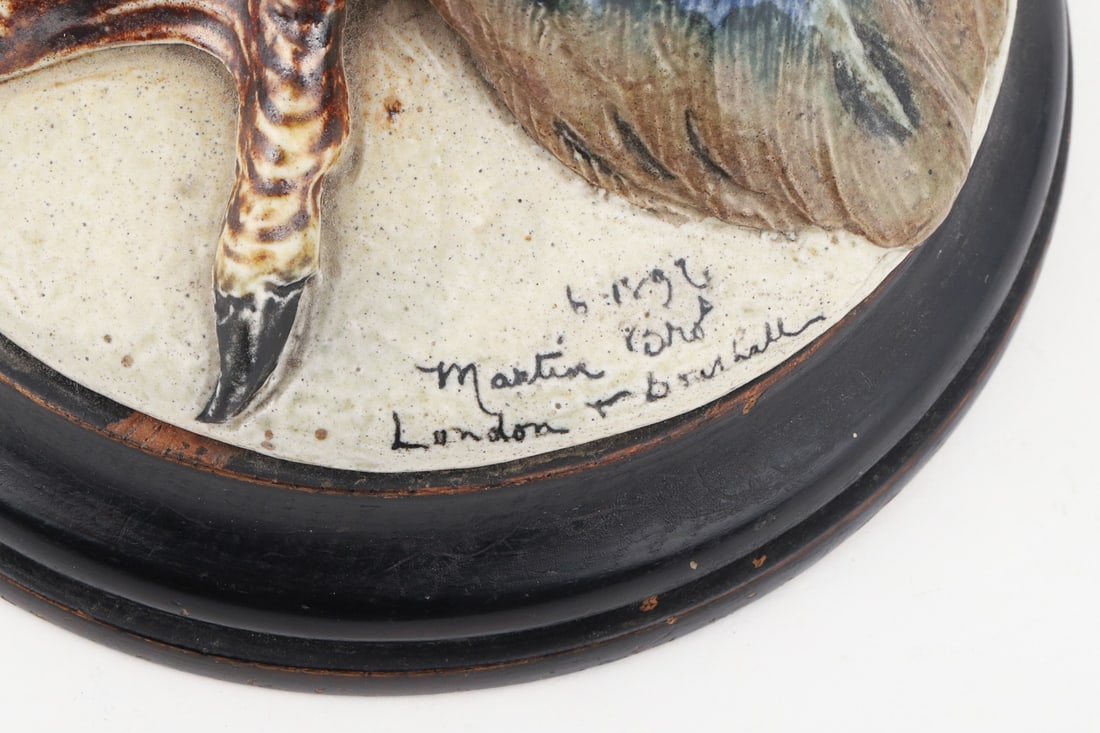 6-1892
Martin Bros
London & Southall